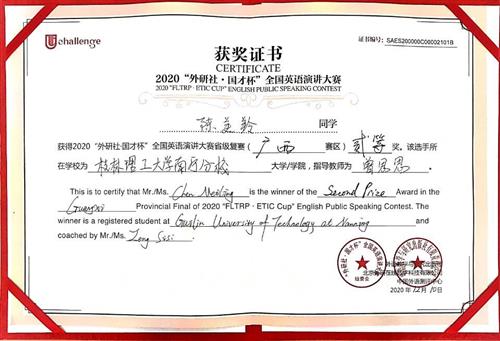 Uchallenge
证书编号：SAES200000C00002101B
获奖证书
CERTIFICATE
2020 “外研社·国才杯” 全国英语演讲大赛
2020 "FLTRP · ETIC CUP" ENGLISH PUBLIC SPEAKING CONTEST
陈美羚 同学
获得2020 “外研社·国才杯” 全国英语演讲大赛省级复赛（广西 赛区）贰等 奖。该选手所
在学校为 桂林理工大学南宁分校 大学/学院，指导教师为 曾思思
This is to certify that Mr./Ms. Chen Meiling is the winner of the Second Prize Award in the
Guangxi Provincial Final of 2020 "FLTRP · ETIC Cup" English Public Speaking Contest. The
winner is a registered student at Guilin University of Technology at Nanning and
coached by Mr./Ms. Zeng Sisi.
组委会
北京外研在线数字科技有限公司
中国外语测评中心
2020 年 12 月 10 日